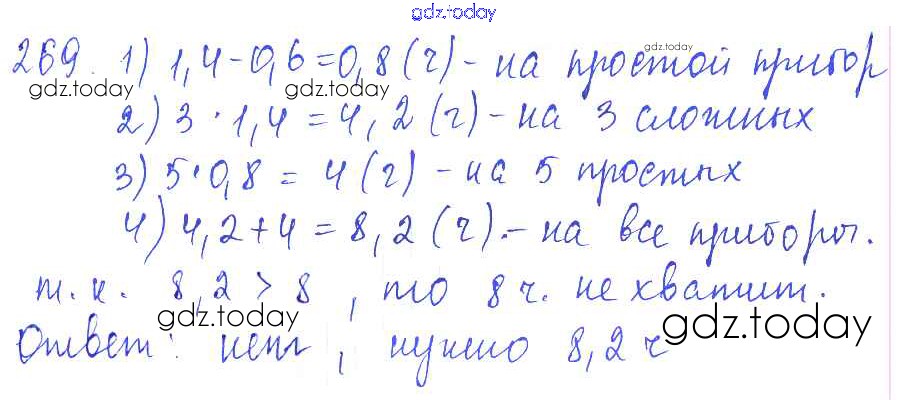 gdz.today
269. 1) 1,4-0,6=0,8(ч) - на простой прибор
gdz.today
gdz.today
gdz.today
2) 3 · 1,4 = 4,2 (ч) - на 3 сложных
3) 5·0,8 = 4 (ч) - на 5 простых
4) 4,2+4 = 8,2 (ч). - на все приборы.
т.к. 8,2 > 8, то 8 ч. не хватит.
gdz.today
gdz.today
Ответ: нет, нужно 8,2 ч